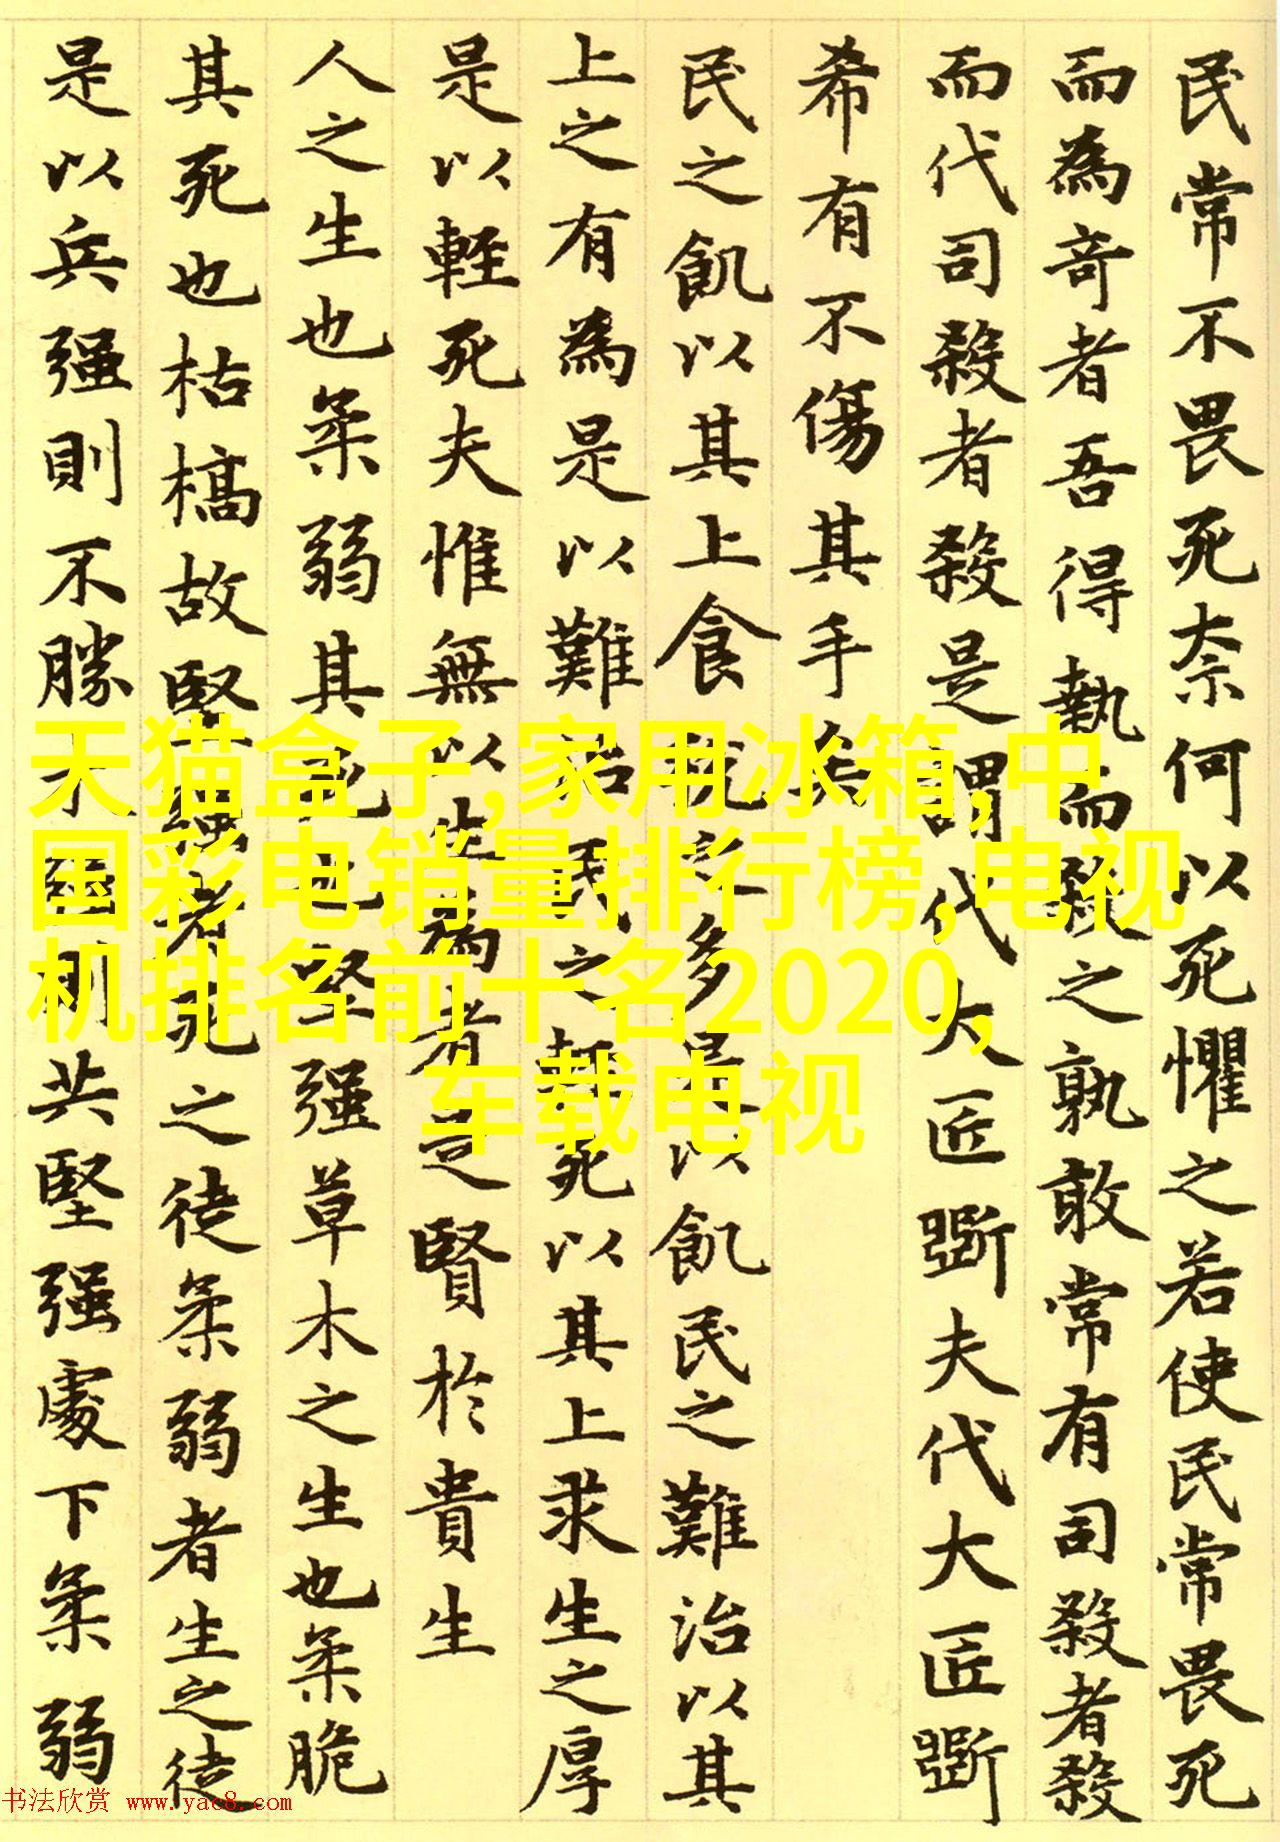 民常不畏死奈何以死懼之若使民常畏死
而為奇者吾得執而殺之孰敢常有司殺者殺
而代司殺者殺是謂代大匠斲夫代大匠斲
希有不傷其手矣
民之飢以其上食稅之多是以飢民之難治以其
上之有為是以難治民之輕死以其上求生之厚
是以輕死夫惟無以生為者是賢於貴生
人之生也柔弱其死也堅强草木之生也柔脆
其死也枯槁故堅强者死之徒柔弱者生之徒
是以兵强則不勝木强則共堅强處下柔弱
天猫盒子,家用冰箱,中
国彩电销量排行榜,电视
机排名前十名2020,
车载电视
书法欣赏 www.yac8.com